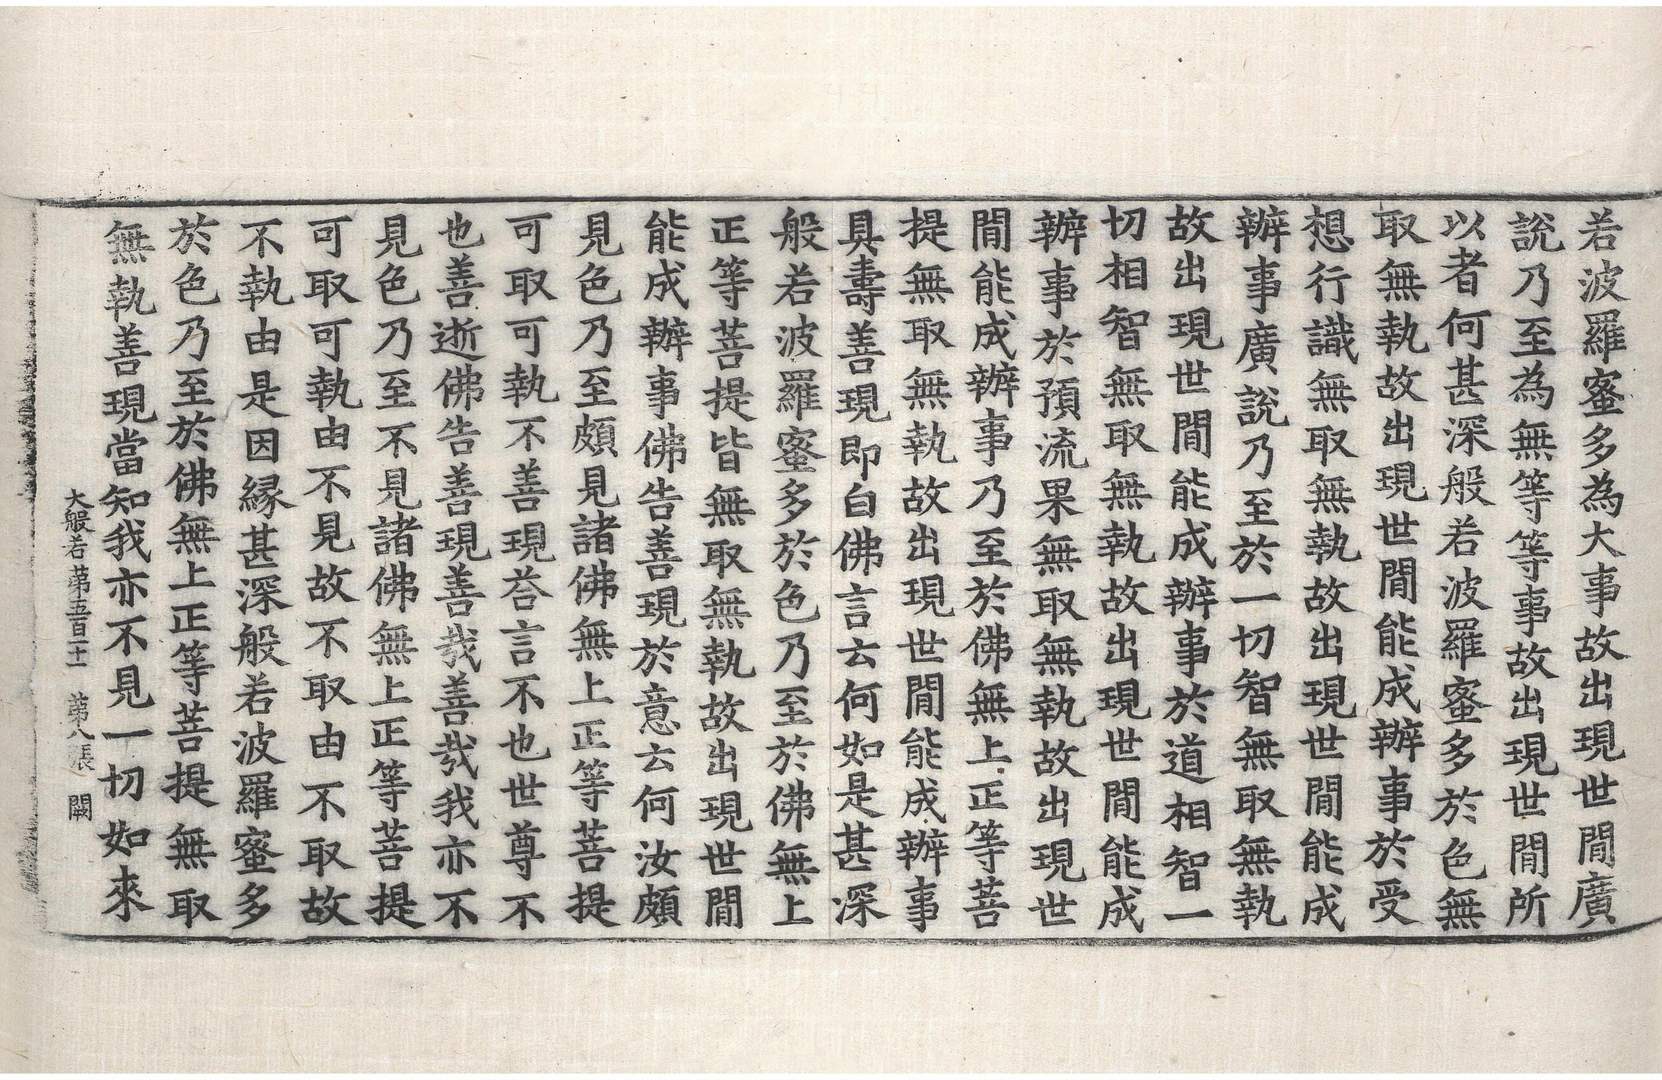 若波羅蜜多為大事故出現世閒廣
說乃至為無等等事故出現世閒所
以者何甚深般若波羅蜜多於色無
取無執故出現世閒能成辦事於受
想行識無取無執故出現世閒能成
辦事廣說乃至於一切智無取無執
故出現世閒能成辦事於道相智一
切相智無取無執故出現世閒能成
辦事於預流果無取無執故出現世
閒能成辦事乃至於佛無上正等菩
提無取無執故出現世閒能成辦事
具壽善現即白佛言云何如是甚深
般若波羅蜜多於色乃至於佛無上
正等菩提皆無取無執故出現世閒
能成辦事佛告善現於意云何汝頗
見色乃至頗見諸佛無上正等菩提
可取可執不善現荅言不也世尊不
也善逝佛告善現善哉善哉我亦不
見色乃至不見諸佛無上正等菩提
可取可執由不見故不取由不取故
不執由是因縁甚深般若波羅蜜多
於色乃至於佛無上正等菩提無取
無執善現當知我亦不見一切如來
大般若苐五百二十一　苐八張　闕